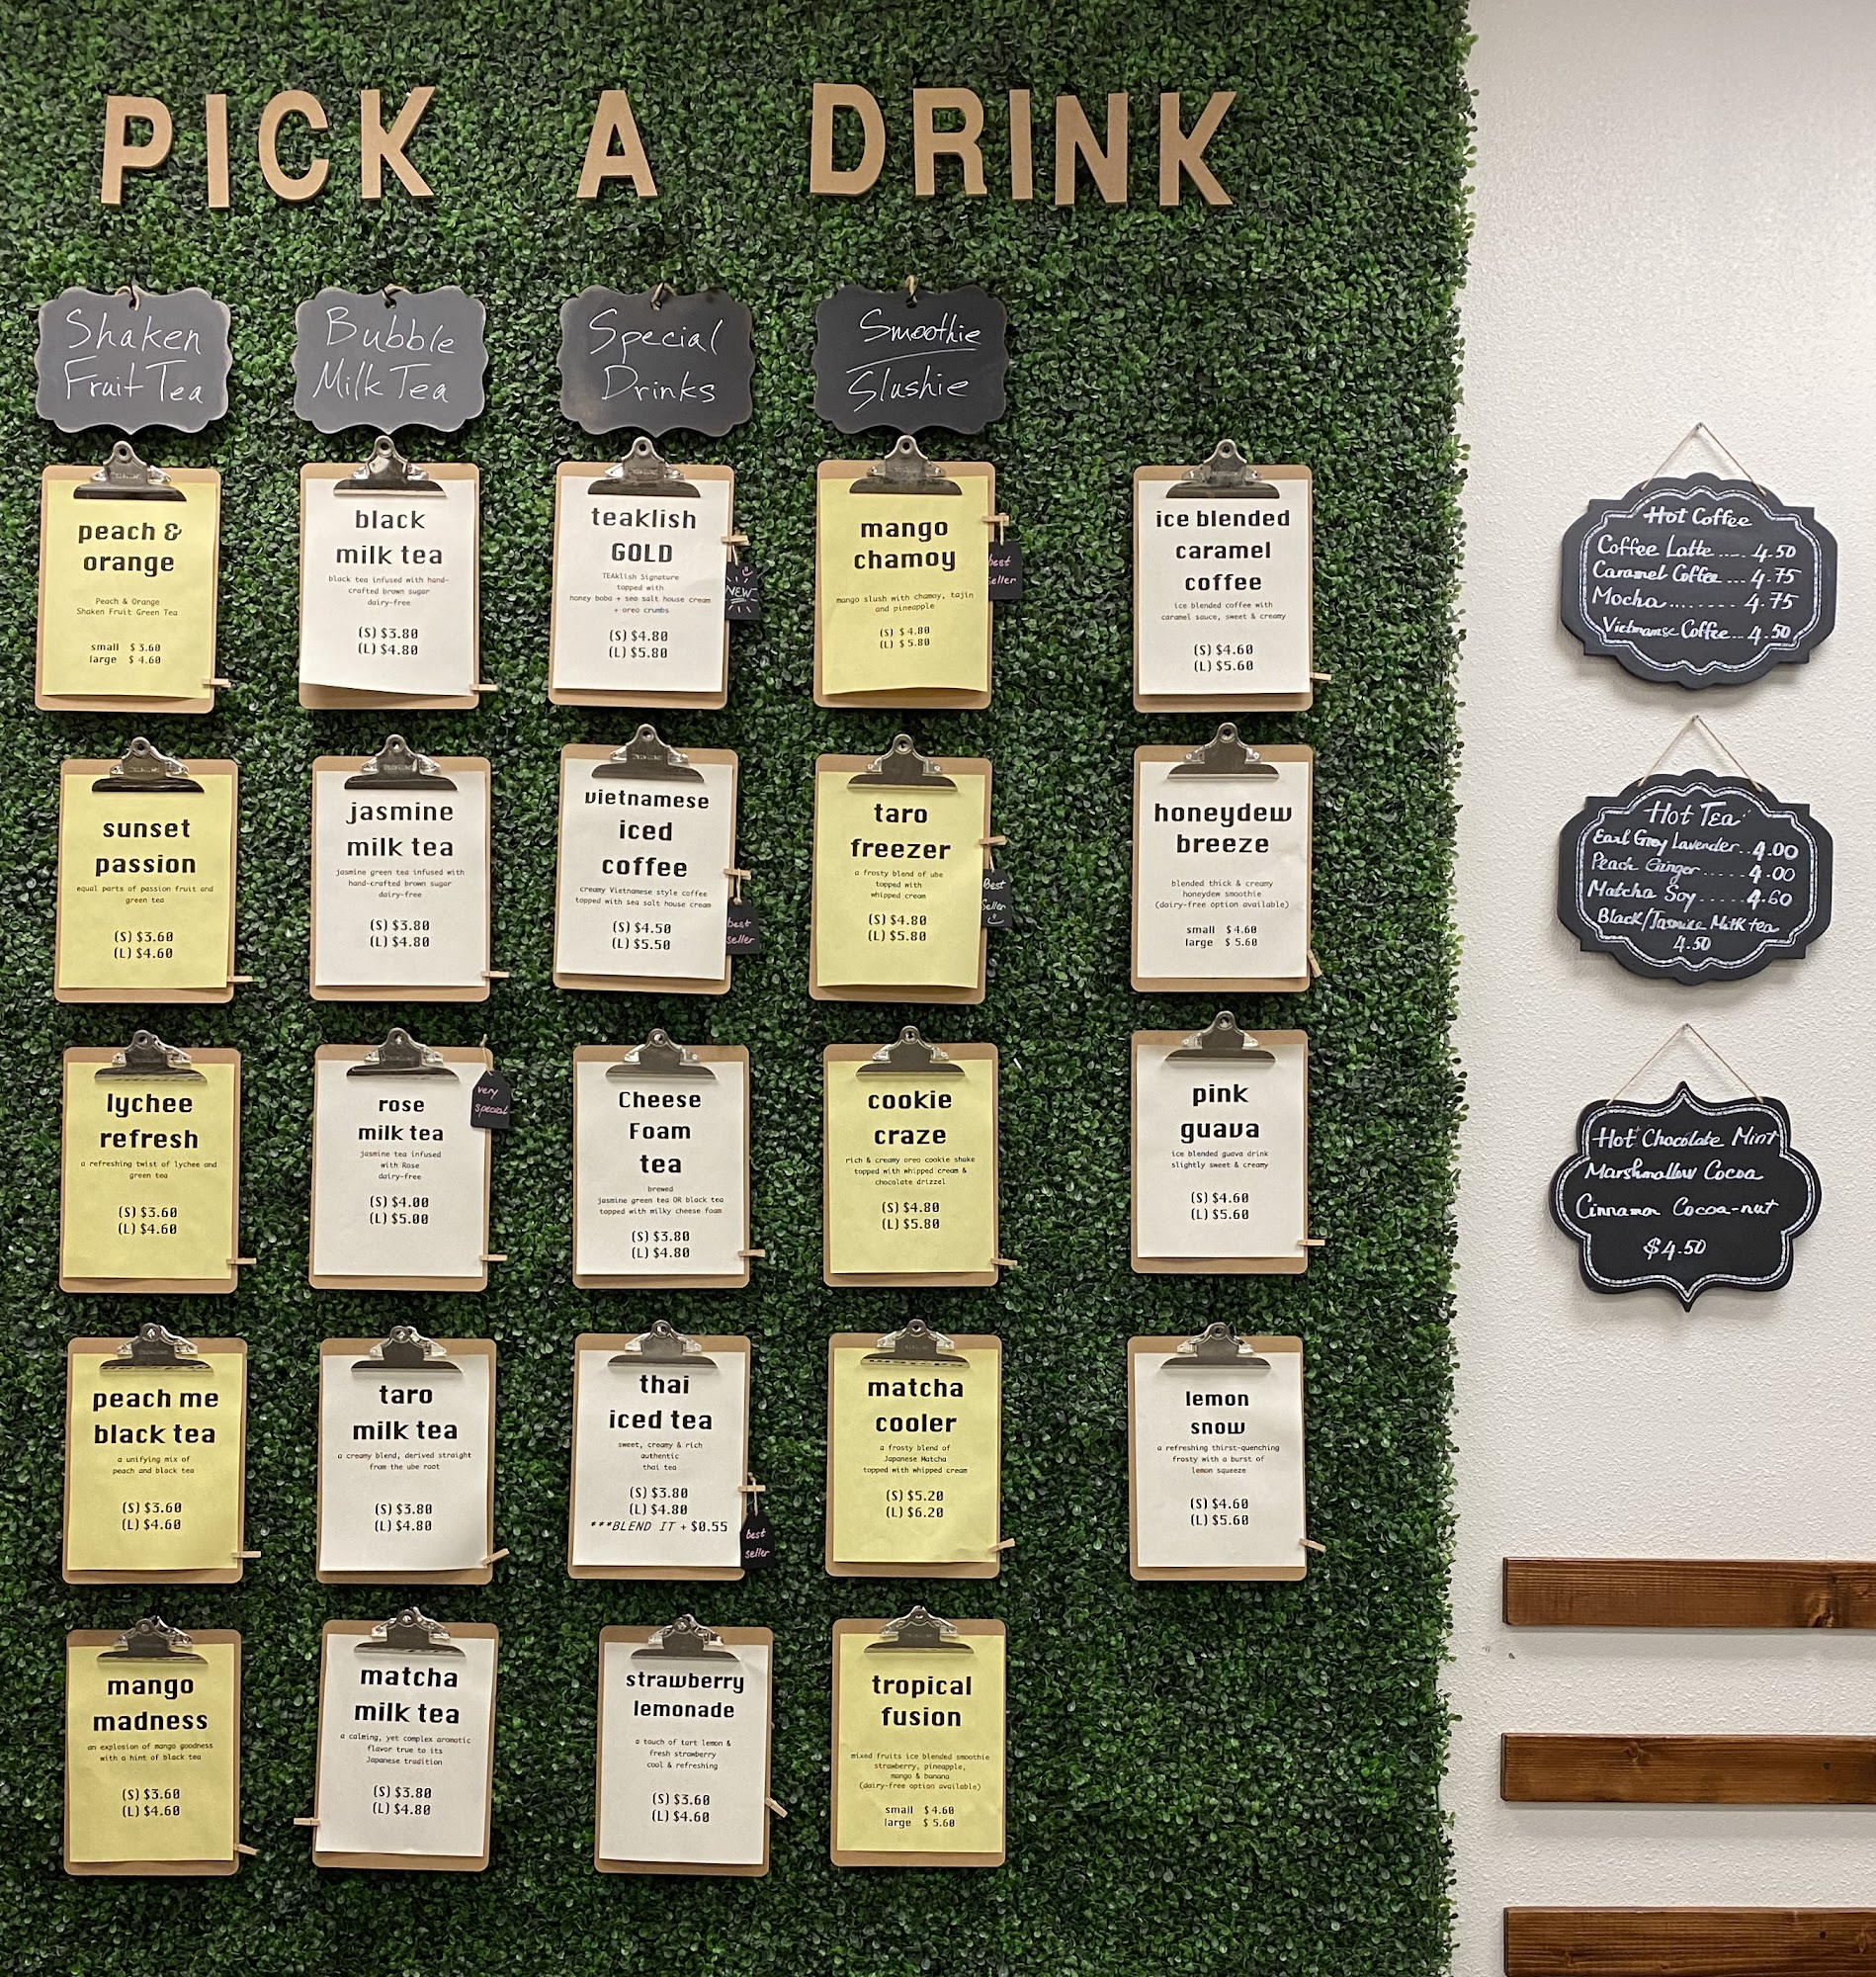 PICK A DRINK
Shaken
Fruit Tea
peach &
orange
Peach & Orange
Shaken Fruit Green Tea
small $3.60
large $4.60
sunset
passion
equal parts of passion fruit and
green tea
(S) $3.60
(L) $4.60
lychee
refresh
a refreshing twist of lychee and
green tea
(S) $3.60
(L) $4.60
peach me
black tea
a unifying mix of
peach and black tea
(S) $3.60
(L) $4.60
mango
madness
an explosion of mango goodness
with a hint of black tea
(S) $3.60
(L) $4.60
Bubble
Milk Tea
black
milk tea
black tea infused with hand-
crafted brown sugar
dairy-free
(S) $3.80
(L) $4.80
jasmine
milk tea
jasmine green tea infused with
hand-crafted brown sugar
dairy-free
(S) $3.80
(L) $4.80
rose
milk tea
jasmine tea infused
with Rose
dairy-free
(S) $4.00
(L) $5.00
very
special
taro
milk tea
a creamy blend, derived straight
from the ube root
(S) $3.80
(L) $4.80
matcha
milk tea
a calming, yet complex aromatic
flavor true to its
Japanese tradition
(S) $3.80
(L) $4.80
Special
Drinks
teaklish
GOLD
TEAklish Signature
topped with
honey boba + sea salt house cream
+ oreo crumbs
(S) $4.80
(L) $5.80
NEW
vietnamese
iced
coffee
creamy Vietnamese style coffee
topped with sea salt house cream
(S) $4.50
(L) $5.50
best
seller
Cheese
Foam
tea
brewed
jasmine green tea OR black tea
topped with milky cheese foam
(S) $3.80
(L) $4.80
thai
iced tea
sweet, creamy & rich
authentic
thai tea
(S) $3.80
(L) $4.80
***BLEND IT + $0.55
best
seller
strawberry
lemonade
a touch of tart lemon &
fresh strawberry
cool & refreshing
(S) $3.60
(L) $4.60
Smoothie
Slushie
mango
chamoy
mango slush with chamoy, tajin
and pineapple
(S) $4.80
(L) $5.80
best
seller
taro
freezer
a frosty blend of ube
topped with
whipped cream
(S) $4.80
(L) $5.80
Best
Seller
cookie
craze
rich & creamy oreo cookie shake
topped with whipped cream &
chocolate drizzel
(S) $4.80
(L) $5.80
matcha
cooler
a frosty blend of
Japanese Matcha
topped with whipped cream
(S) $5.20
(L) $6.20
tropical
fusion
mixed fruits ice blended smoothie
strawberry, pineapple,
mango & banana
(dairy-free option available)
small $4.60
large $5.60
ice blended
caramel
coffee
ice blended coffee with
caramel sauce, sweet & creamy
(S) $4.60
(L) $5.60
honeydew
breeze
blended thick & creamy
honeydew smoothie
(dairy-free option available)
small $4.60
large $5.60
pink
guava
ice blended guava drink
slightly sweet & creamy
(S) $4.60
(L) $5.60
lemon
snow
a refreshing thirst-quenching
frosty with a burst of
lemon squeeze
(S) $4.60
(L) $5.60
Hot Coffee
Coffee Latte.....4.50
Caramel Coffee...4.75
Mocha.........4.75
Vietnamese Coffee...4.50
Hot Tea
Earl Grey Lavender...4.00
Peach Ginger......4.00
Matcha Soy.....4.60
Black/Jasmine Milk tea
4.50
Hot Chocolate Mint
Marshmallow Cocoa
Cinnamon Cocoa-nut
$4.50